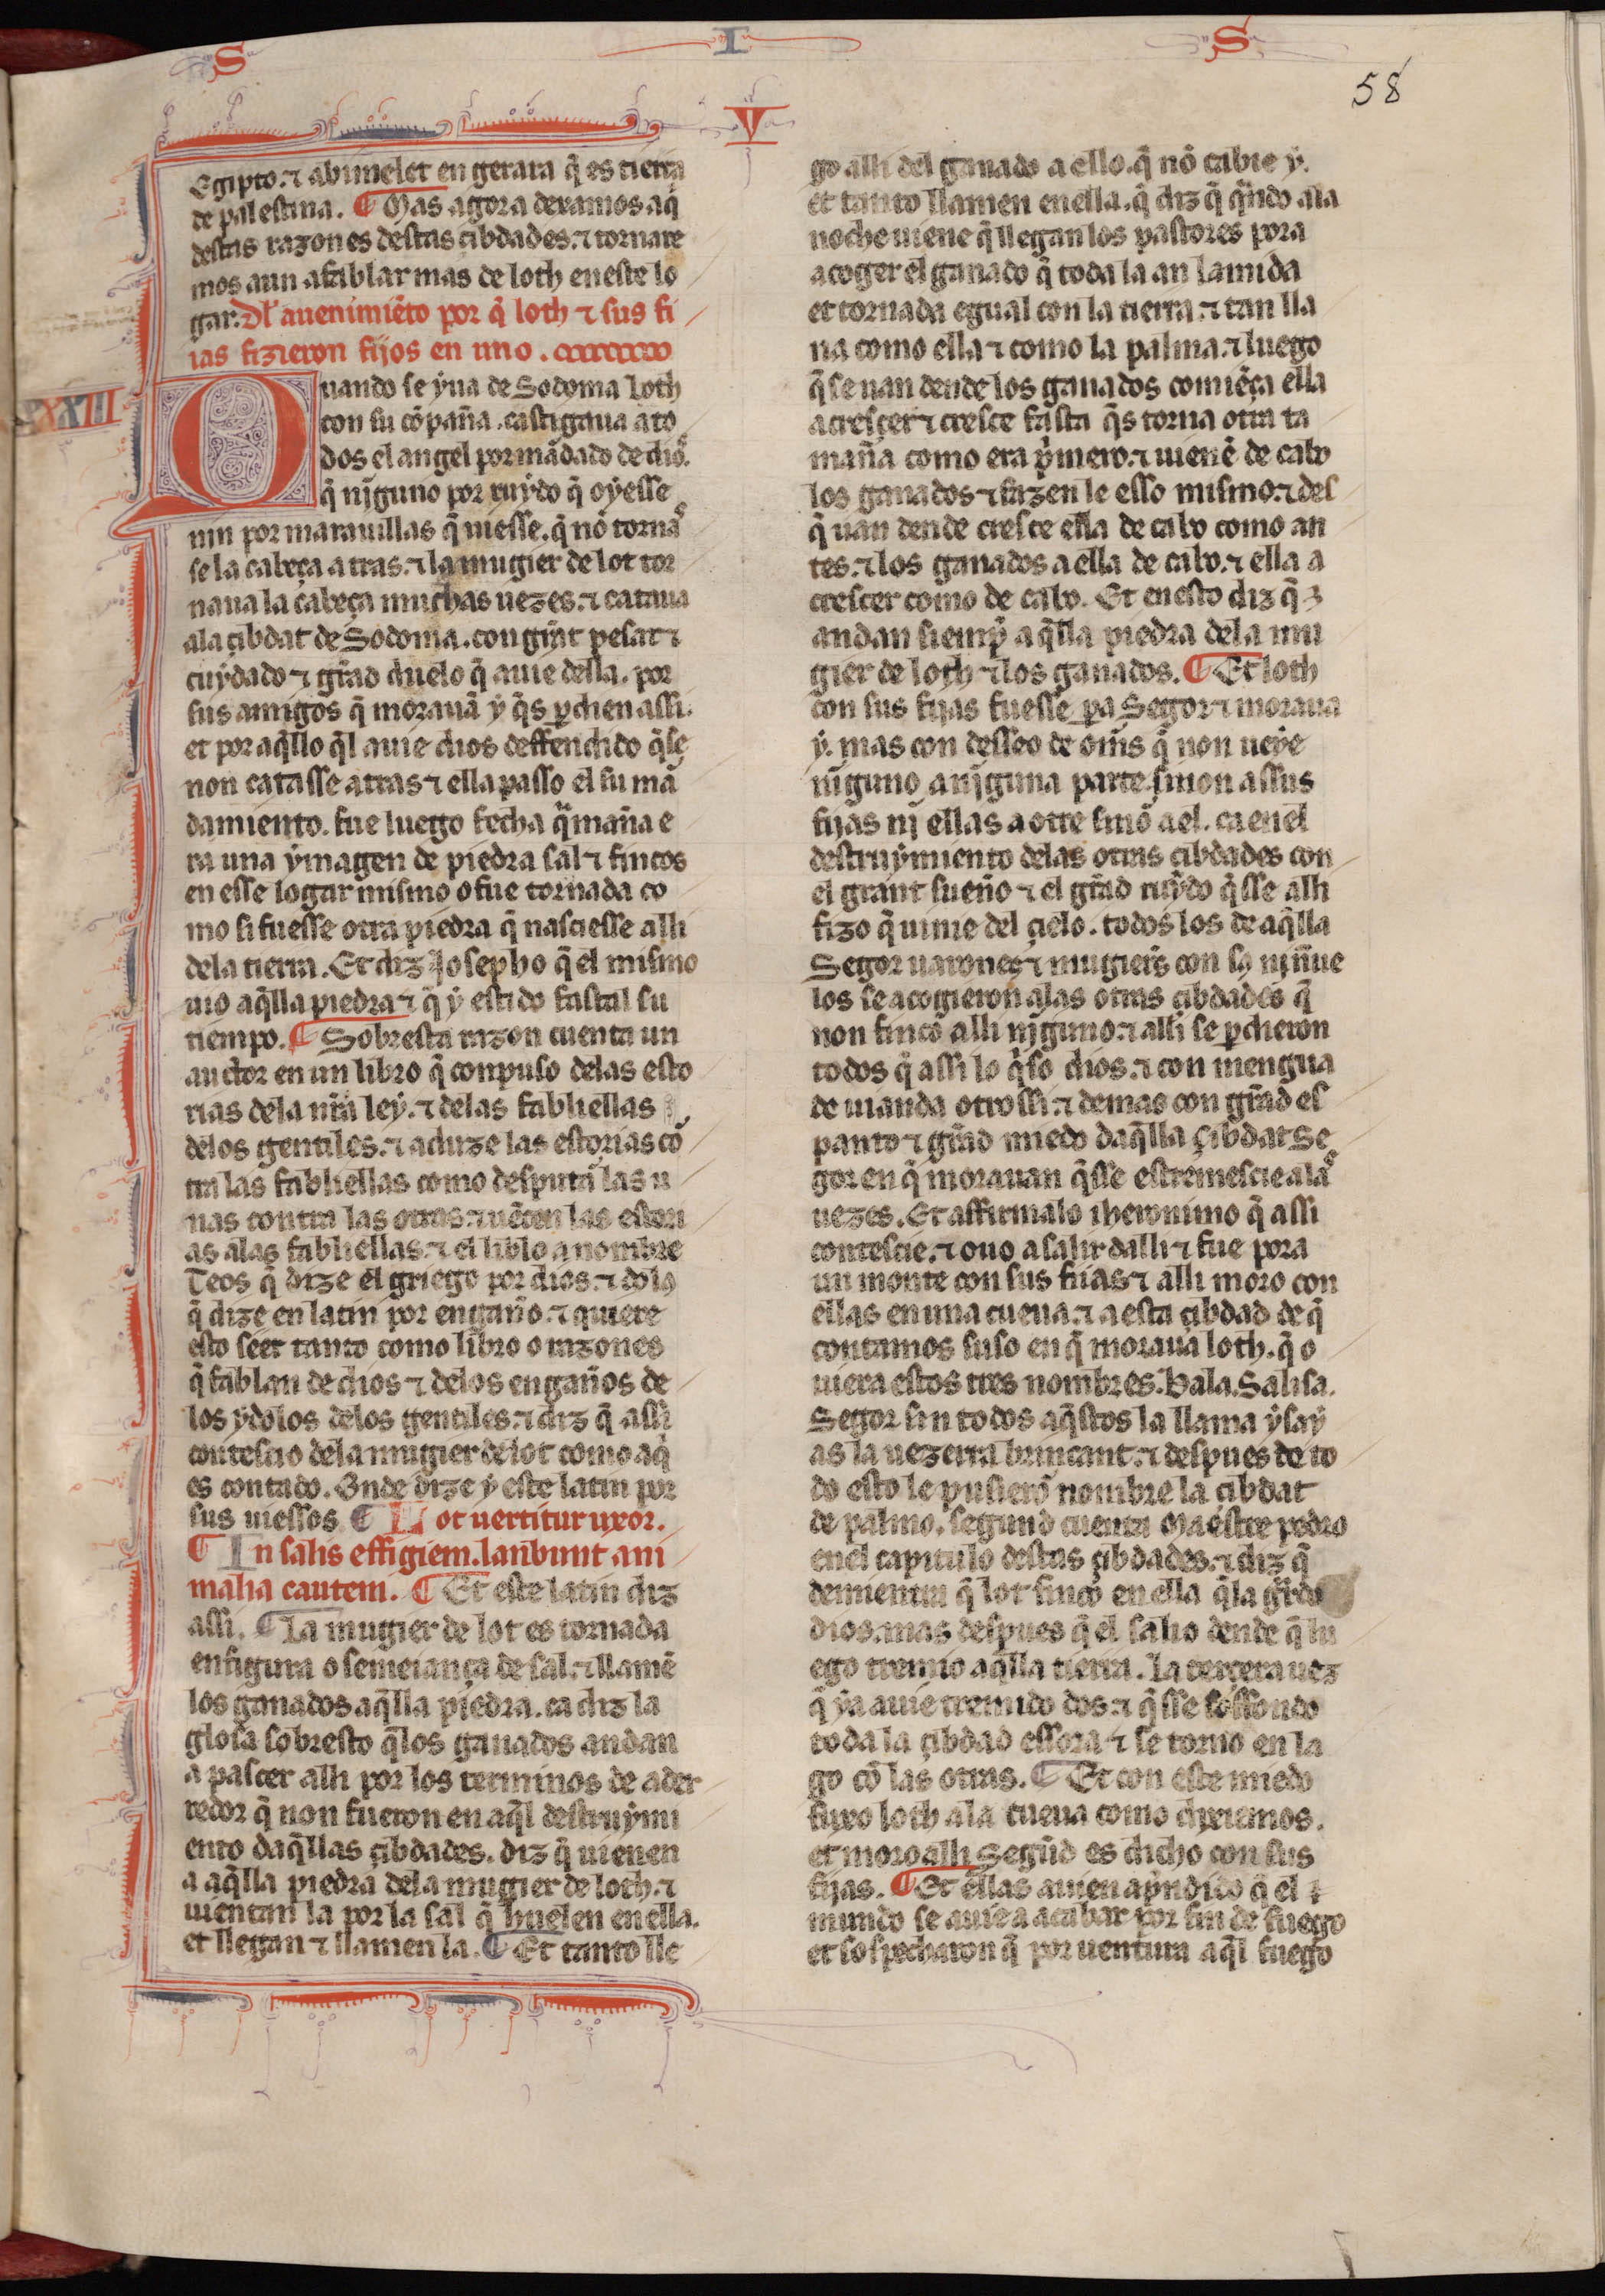 S I S
58
V
Egipto. ⁊ abimelet en gerara q̃ es tierra
de palestina. ¶ Mas agora dexamos aq̃
destas razones destas çibdades. ⁊ tornare
mos aun a fablar mas de loth en este lo
gar. Dl̃ auenimiẽto por q̃ loth ⁊ sus fi
ias fizieron fijos en uno.
XXXIII
Quando se yua de Sodoma Loth
con su cõpaña. castigaua a to
dos el angel por mãdado de dios.
q̃ nĩguno por ruydo q̃ oyesse
nin por marauillas q̃ uiesse. q̃ nõ tornas
se la cabeça atras. ⁊ la mugier de lot tor
naua la cabeça muchas uezes. ⁊ cataua
ala çibdat de Sodoma. con grãt pesar ⁊
cuydado ⁊ grãd duelo q̃ auie della. por
sus amigos q̃ morauã y q̃s p̱dien assi.
et por aq̃llo q̃l auie dios deffendido q̃ se
non catasse atras ⁊ ella passo el su mã
damiento. fue luego fecha q̃maña e
ra una ymagen de piedra sal ⁊ fincos
en esse logar mismo o fue tornada co
mo si fuesse otra piedra q̃ nasciesse alli
dela tierra. Et diz Josepho q̃ el mismo
uio aq̃lla piedra ⁊ q̃ y estido fastal su
tiempo. ¶ Sobresta razon cuenta un
auctor en un libro q̃ conpuso delas esto
rias dela nr̃a ley. ⁊ delas fabliellas
delos gentiles. ⁊ aduze las estorias cõ
tra las fabliellas como desputã las u
nas contra las otras. ⁊ uẽcen las estori
as alas fabliellas. ⁊ el liblo a nombre
Teos q̃ dize el griego por dios. ⁊ dolꝯ
q̃ dize en latin por engaño. ⁊ quiere
esto seer tanto como libro o razones
q̃ fablan de dios ⁊ delos engaños de
los ydolos delos gentiles. ⁊ diz q̃ assi
contescio dela mugier de lot como aq̃
es contado. Onde dize y este latin por
sus uiessos ¶ Lot uertitur uxor.
¶ In salis effigiem. lanbunt ani
malia cautem. ¶ Et este latin diz
assi. ¶ La mugier de lot es tornada
en figura o semeiança de sal. ⁊ llamẽ
los ganados aq̃lla piedra. ca diz la
glosa sobresto q̃ los ganados andan
a pascer alli por los terminos de ader
redor q̃ non fueron en aq̃l destruymi
ento daq̃llas çibdades. diz q̃ uienen
a aq̃lla piedra dela mugier de loth. ⁊
uientan la por la sal q̃ huelen en ella.
et llegan ⁊ llamen la. ¶ Et tanto lle
go alli del ganado a ello. q̃ nõ cabie y.
et tanto llamen en ella. q̃ diz q̃ q̃ndo ala
noche uiene q̃ llegan los pastores pora
acoger el ganado q̃ toda la an lamida
et tornada egual con la tierra. ⁊ tan lla
na como ella ⁊ como la palma. ⁊ luego
q̃ se uan dende los ganados comiẽça ella
a cresçer ⁊ cresce fasta q̃s torna otra ta
maña como era p̃mero. ⁊ uienẽ de cabo
los ganados ⁊ fazen le esso mismo. ⁊ des
q̃ uan dende cresce ella de cabo como an
tes. ⁊ los ganados a ella de cabo. ⁊ ella a
crescer como de cabo. Et en esto diz q̃
andan siemp̃ aq̃lla piedra dela mu
gier de loth ⁊ los ganados. ¶ Et loth
con sus fijas fuesse pa Segor ⁊ moraua
y. mas con desseo de om̃s q̃ non ueye
nĩguno a nĩguna parte. sinon assus
fijas nĩ ellas a otre sinõ a el. ca en el
destruymiento delas otras çibdades con
el grant sueño ⁊ el grãd ruydo q̃sse alli
fizo q̃ uinie del çielo. todos los de aq̃lla
Segor uarones ⁊ mugieres con sꝯ niñue
los se acogieron alas otras çibdades q̃
non fincõ alli nĩguno. ⁊ alli se p̱dieron
todos q̃ assi lo q̃so dios. ⁊ con mengua
de uianda otrossi. ⁊ demas con grãd es
panto ⁊ grãd miedo daq̃lla çibdat Se
gor en q̃ morauan q̃sse estremescie alas
uezes. Et affirmalo iheronimo q̃ assi
contescie. ⁊ ouo a salir dalli ⁊ fue pora
un monte con sus fijas ⁊ alli moro con
ellas en una cueua. ⁊ a esta çibdad de q̃
contamos suso en q̃ moraua loth. q̃ o
uiera estos tres nombres. Bala. Salisa.
Segor sin todos aq̃stos la llama ysay
as la uezerra bruncant. ⁊ despues de to
do esto le pusierõ nombre la çibdat
de palmo. segund cuenta Maestre pedro
en el capitulo destas çibdades. ⁊ diz q̃
demientra q̃ lot fincõ en ella q̃ la gr̃do
dios. mas despues q̃ el salio dende q̃ lu
ego tremio aq̃lla tierra. la tercera uez
q̃ ya auie tremido dos. ⁊ q̃sse soffondo
toda la çibdad essora ⁊ se torno en la
go cõ las otras. ¶ Et con este miedo
fuxo loth ala cueua como dixiemos.
et moro alli Segũd es dicho con sus
fijas. ¶ Et ellas auien ap̃ndido q̃ el
mundo se auie a acabar por fin de fuego
et sospecharon q̃ por uentura aq̃l fuego